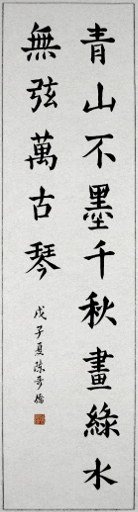 青山不墨千秋畫綠水
無弦萬古琴
戊子夏陈奇